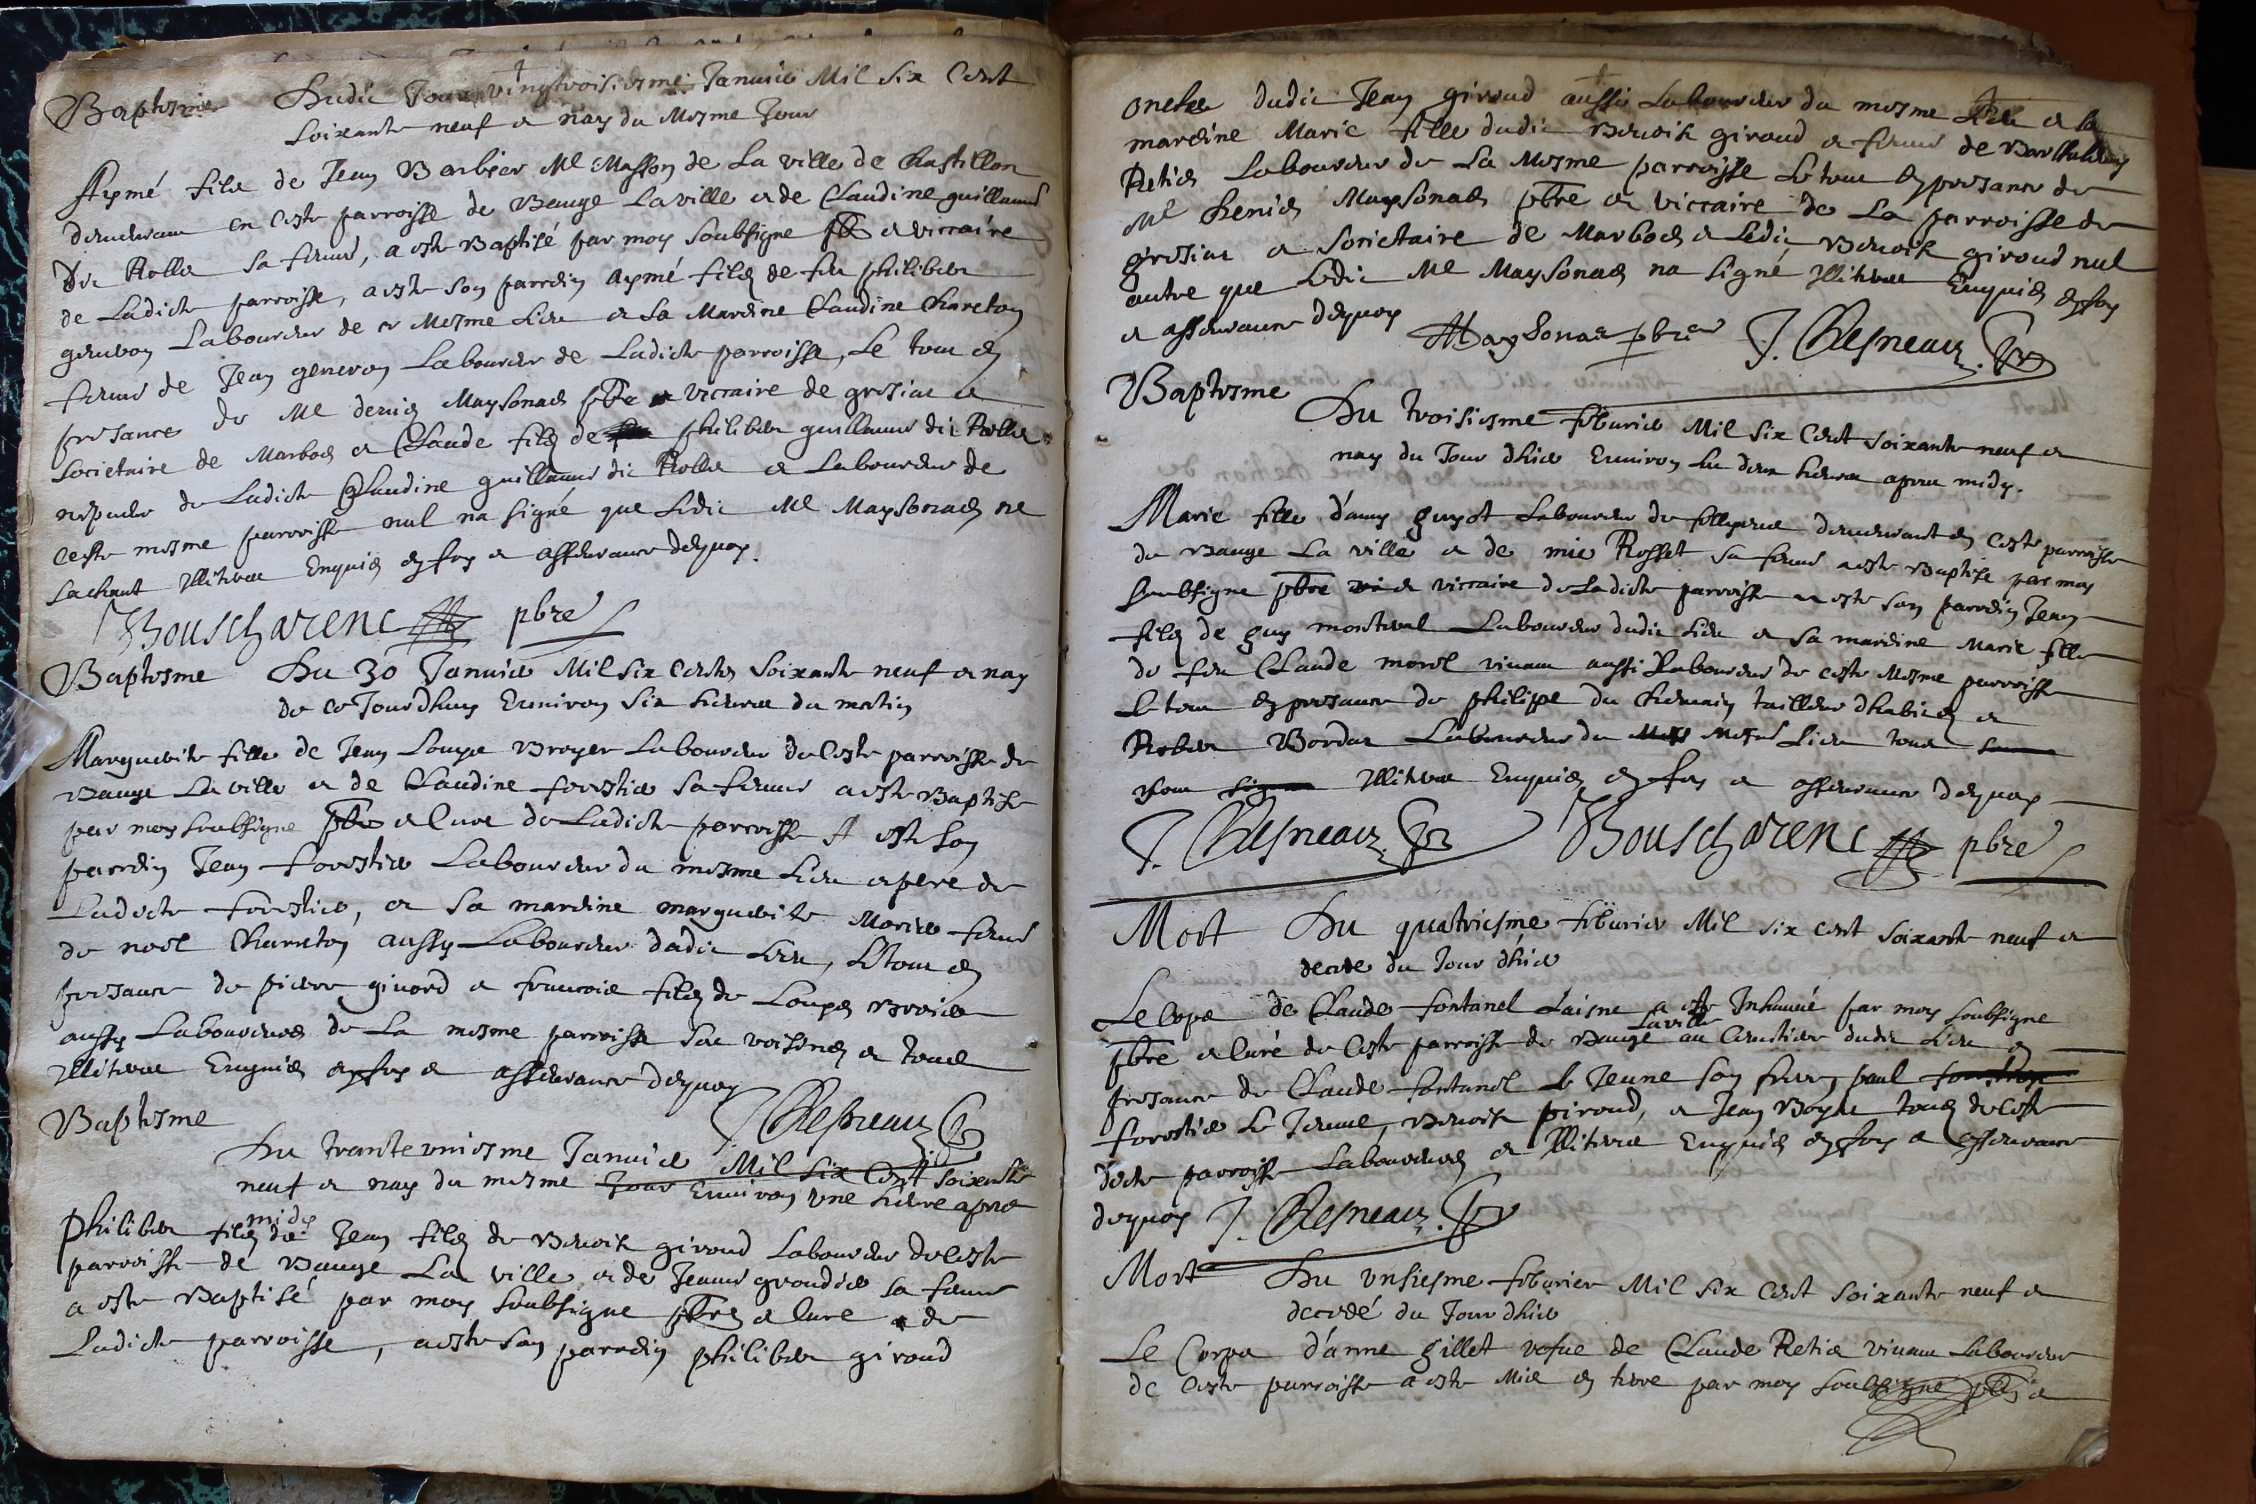 Baptesme Dudit Jour vingtroisiesme Janvier Mil six Cent
soixante neuf et nay du Mesme Jour
Aymé filz de Jean Barbier Me Masson de La ville de Chastillon
demeurant en Ceste parroisse de Baugé La ville et de Claudine guillaume
dit Rolle sa feme, a este Baptisé par moy soubsigne pbre et viccaire
de Ladicte parroisse, a este son parrein Aymé filz de feu philiber
genevon Laboureur de ce Mesme Lieu et La Mareine Claudine Chareton
feme de Jean genevon Laboureur de Ladicte parroisse, Le tout en
presance de Me denis Maysonas pbre et viccaire de gresiat et
societaire de Marbos et Claude filz de philiber guillaume dit Rolle
nepveu de Ladicte Claudine guillaume dit Rolle et Laboureur de
Ceste mesme parroisse nul na signé que Ledit Me Maysonas ne
sachant Illiterez Enquis en foy et asseurance dequoy.
Bouscharenc pbre
Baptesme Du 30 Janvier Mil six Cents soixante neuf et nay
de ce Jourdhuy Environ six heures du matin
Marguerite fille de Jean Loupe Broyer Laboureur de Ceste parroisse de
Bauge La ville et de Claudine forestier sa feme a este Baptisee
par moy soubsigne pbre et Cure de Ladicte parroisse A este son
parrein Jean forestier Laboureur du mesme Lieu et pere de
Ladicte forestier, et sa mareine marguerite Morier feme
de noel Chareton aussy Laboureur dudit Lieu, Le tout en
presance de pierre girord et francois filz de Loupes Broier
aussy Laboureurs de La mesme parroisse ses voisines et tous
Illiterez Enquis en foy et asseurance dequoy
J. Chesneau
Baptesme
Du trante uniesme Janvier Mil six Cent soixante
neuf et nay du mesme Jour Environ une heure apres
midy
Philiber filz de Jean filz de Benoist giroud Laboureur de Ceste
parroisse de Bauge La ville et de Jeanne groudier sa feme
a este Baptisé par moy soubsigne pbre et Cure de
Ladicte parroisse, a este son parrein philiber giroud
oncle dudit Jean giroud aussi Laboureur du mesme Lieu et la
mareine Marie fille dudit Benoist giroud et feme de
Retis Laboureur de La Mesme parroisse Le tout en presance de
Me Denis Maysonas pbre et viccaire de La parroisse de
gresiat et societaire de Marbos et Ledit Benoist giroud nul
autre que Ledit Me Maysonas na signé Illiterez Enquis en foy
et asseurance dequoy Maysonas pbre J. Chesneau
Baptesme
Du troisiesme febvrier Mil six Cent soixante neuf et
nay du Jour dhier Environ les deux heures apres midy.
Marie fille d'amy guyot Laboureur de demeurant en Ceste parroisse
de Bauge La ville et de mie Rosset sa feme a este Baptise par moy
soubsigne pbre et viccaire de Ladicte parroisse a este son parrein Jean
filz de guy montval Laboureur dudit Lieu et sa mareine Marie fille
de feu Claude morel vivant aussi Laboureur de ceste Mesme parroisse
Le tout en presance de philippe du Chemin tailleur dhabits et
Rober Bordat Laboureur du Mesme Lieu tous
Illiterez Enquis en foy et asseurance dequoy
J. Chesneau Bouscharenc pbre
Mort Du quatriesme febvrier Mil six cent soixante neuf et
decede du Jour dhier
Le Corps de Claude fontanel Laisne a este Inhumé par moy soubsigne
pbre et Curé de Ceste parroisse de Baugé La ville au Cimetiere dudit Lieu en
presance de Claude fontanel le Jeune son frere, paul
forestier Le Jeune, Benoist piroud, et Jean Boyer tous de Ceste
dicte parroisse Laboureurs et Illiterez Enquis en foy et asseurance
dequoy J. Chesneau
Mort Du unsiesme febvrier Mil six Cent soixante neuf et
decedé du Jour dhier
Le Corps d'anne gillet vefue de Claude Retis vivant Laboureur
de Ceste parroisse a este Mis en terre par moy soubsigne pbre et